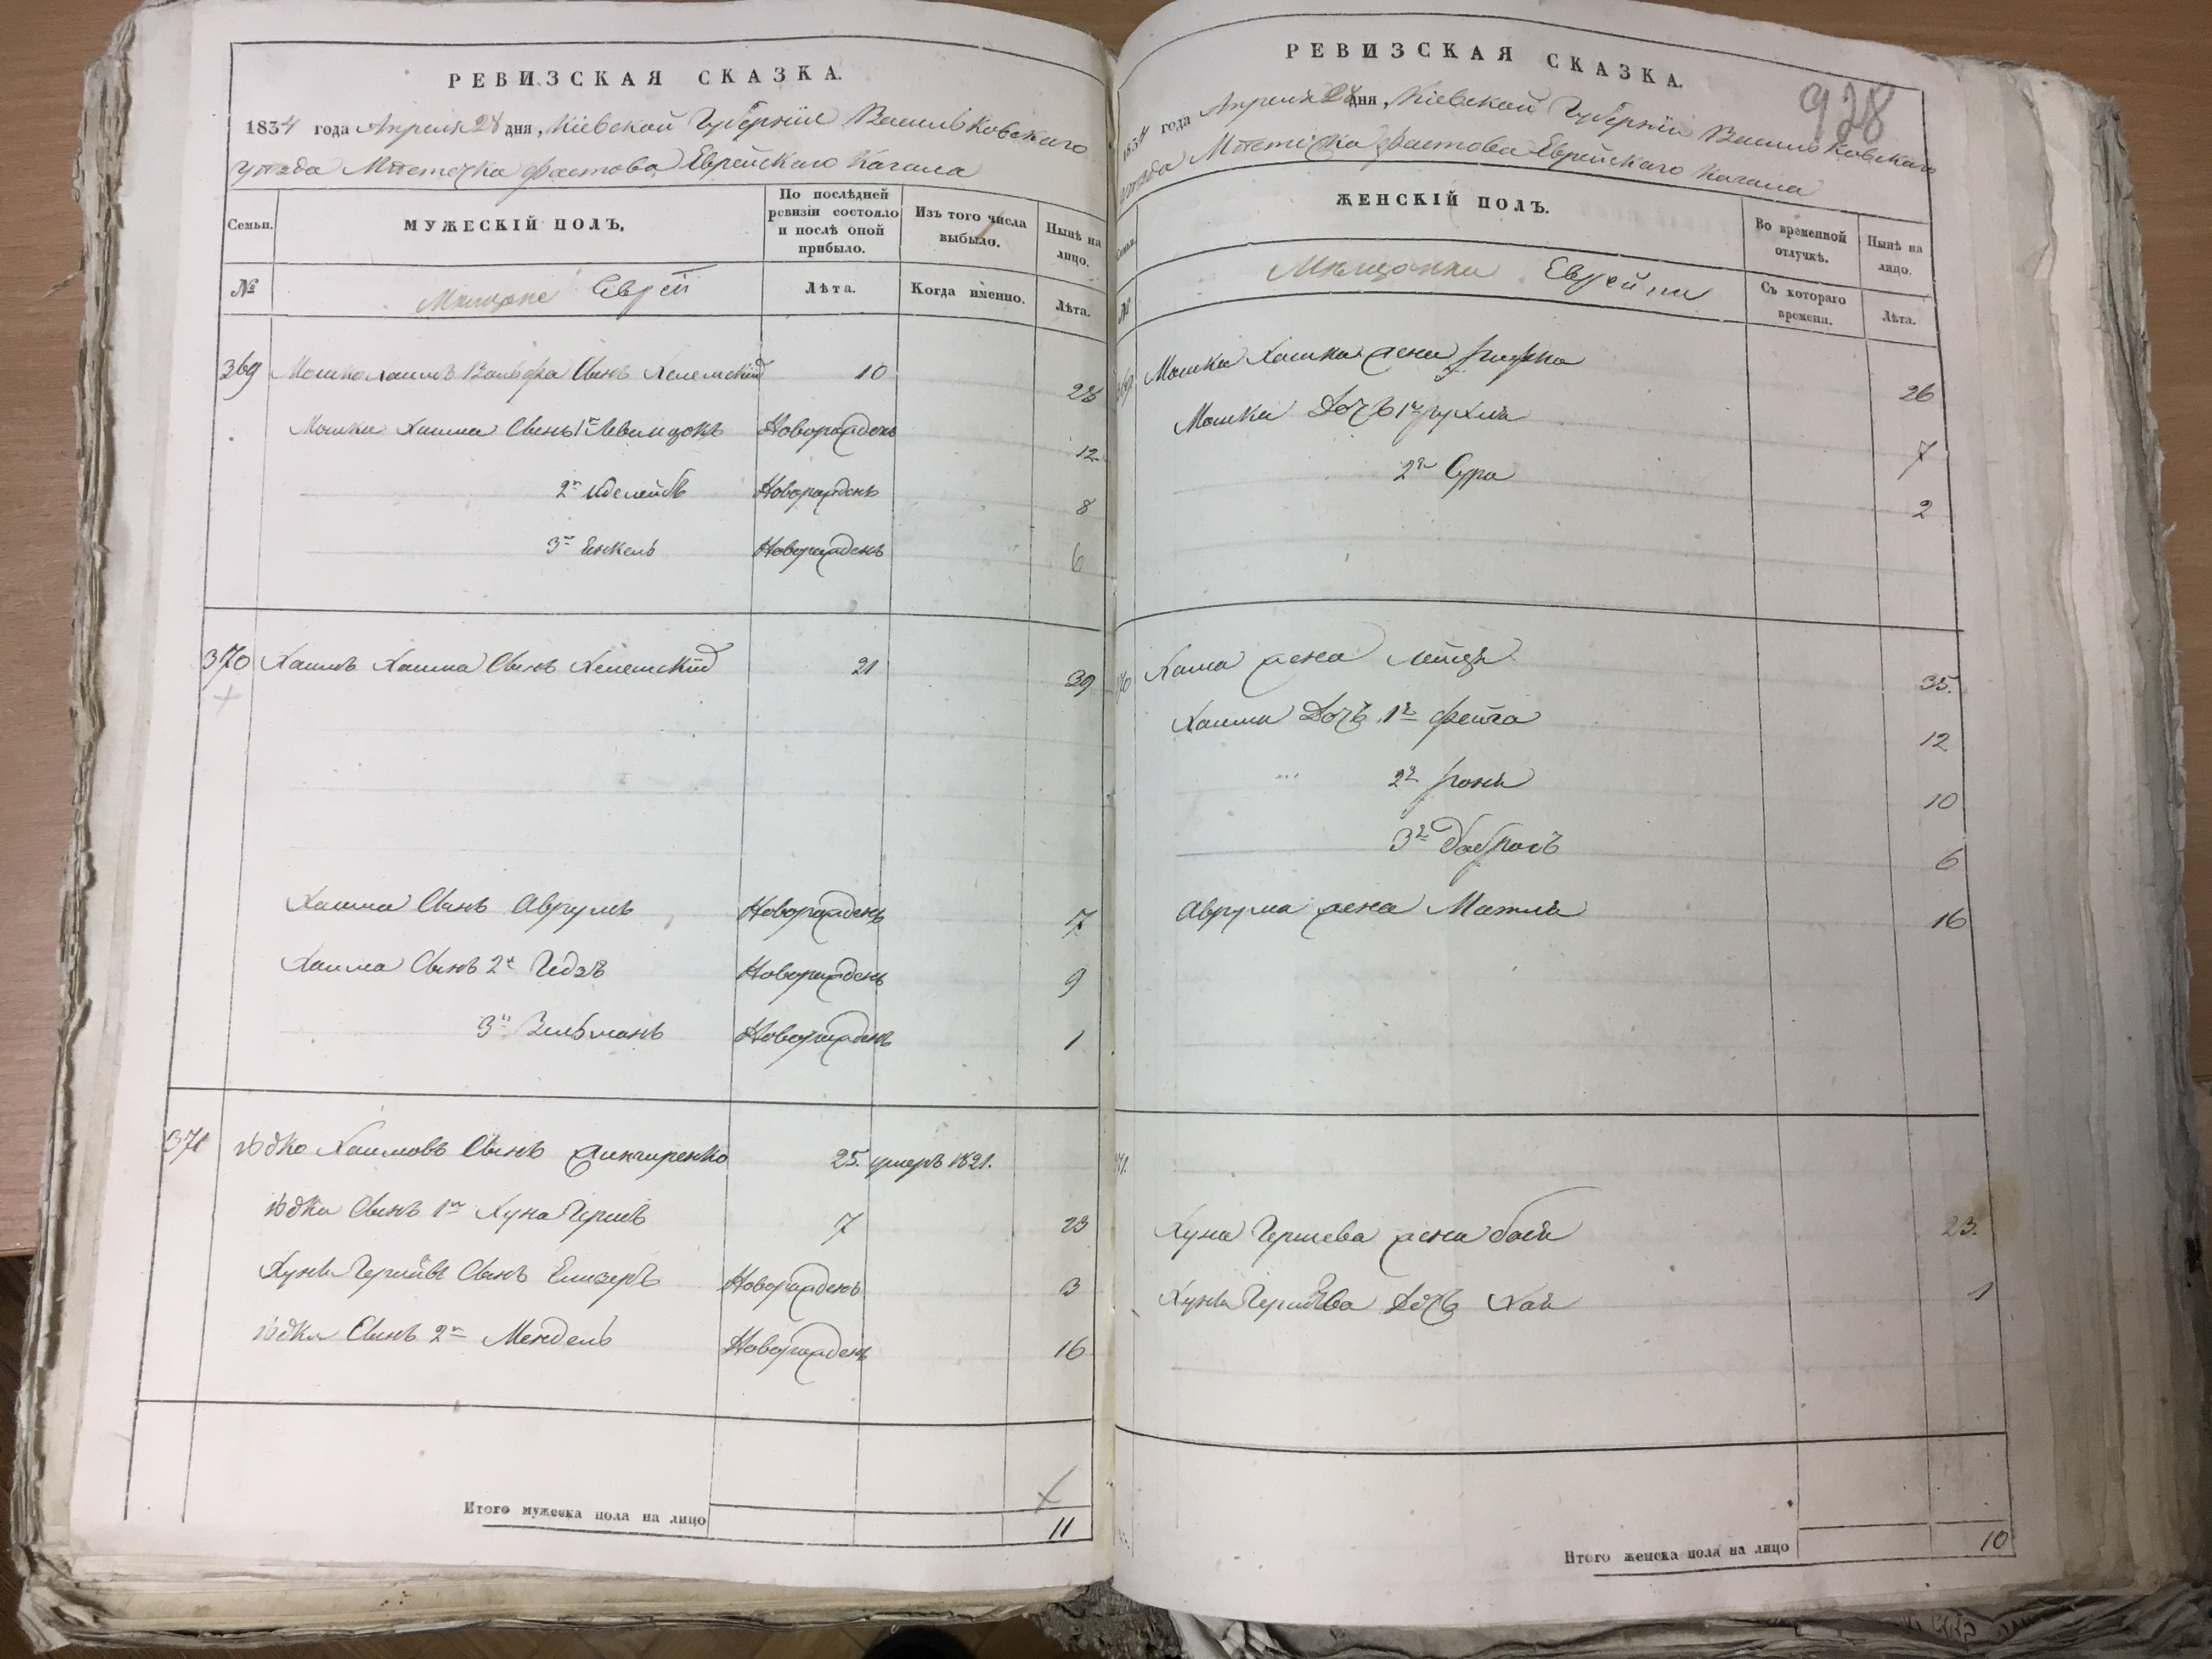 РЕВИЗСКАЯ СКАЗКА.
1834 года Апреля 28 дня, Кіевской Губерніи Васильковскаго
уѣзда Мѣстечка Фастова Еврейскаго Кагала
Семьи. МУЖЕСКІЙ ПОЛЪ. По послѣдней ревизіи состояло и послѣ оной прибыло. Изъ того числа выбыло. Нынѣ на лицо.
№ Мѣщане Евреи Лѣта. Когда именно. Лѣта.
369 Мошко Хаимъ Вольфа Сынъ 10 26
Мошки Хаима Сынъ 1й Новорожденъ 12
2й Новорожденъ 8
3й Енкель Новорожденъ 6
370 Хаимъ Хаима Сынъ 21 39
Хаима Сынъ Аврумъ Новорожденъ 17
Хаима Сынъ 2й Новорожденъ 9
3й Новорожденъ 1
371 Юдко Хаимовъ Сынъ 25. умеръ 1821.
Юдки Сынъ 1й Хуна Гершъ 7 23
Сынъ Новорожденъ 3
Юдки Сынъ 2й Мендель Новорожденъ 16
Итого мужеска пола на лицо 11
928
РЕВИЗСКАЯ СКАЗКА.
1834 года Апреля 28 дня, Кіевской Губерніи Васильковскаго
уѣзда Мѣстечка Фастова Еврейскаго Кагала
Семьи. ЖЕНСКІЙ ПОЛЪ. Во временной отлучкѣ. Нынѣ на лицо.
№ Мѣщанки Еврейки Съ котораго времени. Лѣта.
369 Мошки Хаима жена 26
Мошки Дочь 1я Рухля 7
2я Сура 2
370 Хаима жена 35.
Хаима Дочь 1я Фейга 12
2я 10
3я 6
Аврума жена Матля 16
371.
Хуна Гершева жена Бася 23.
Дочь Хая 1
Итого женска пола на лицо 10